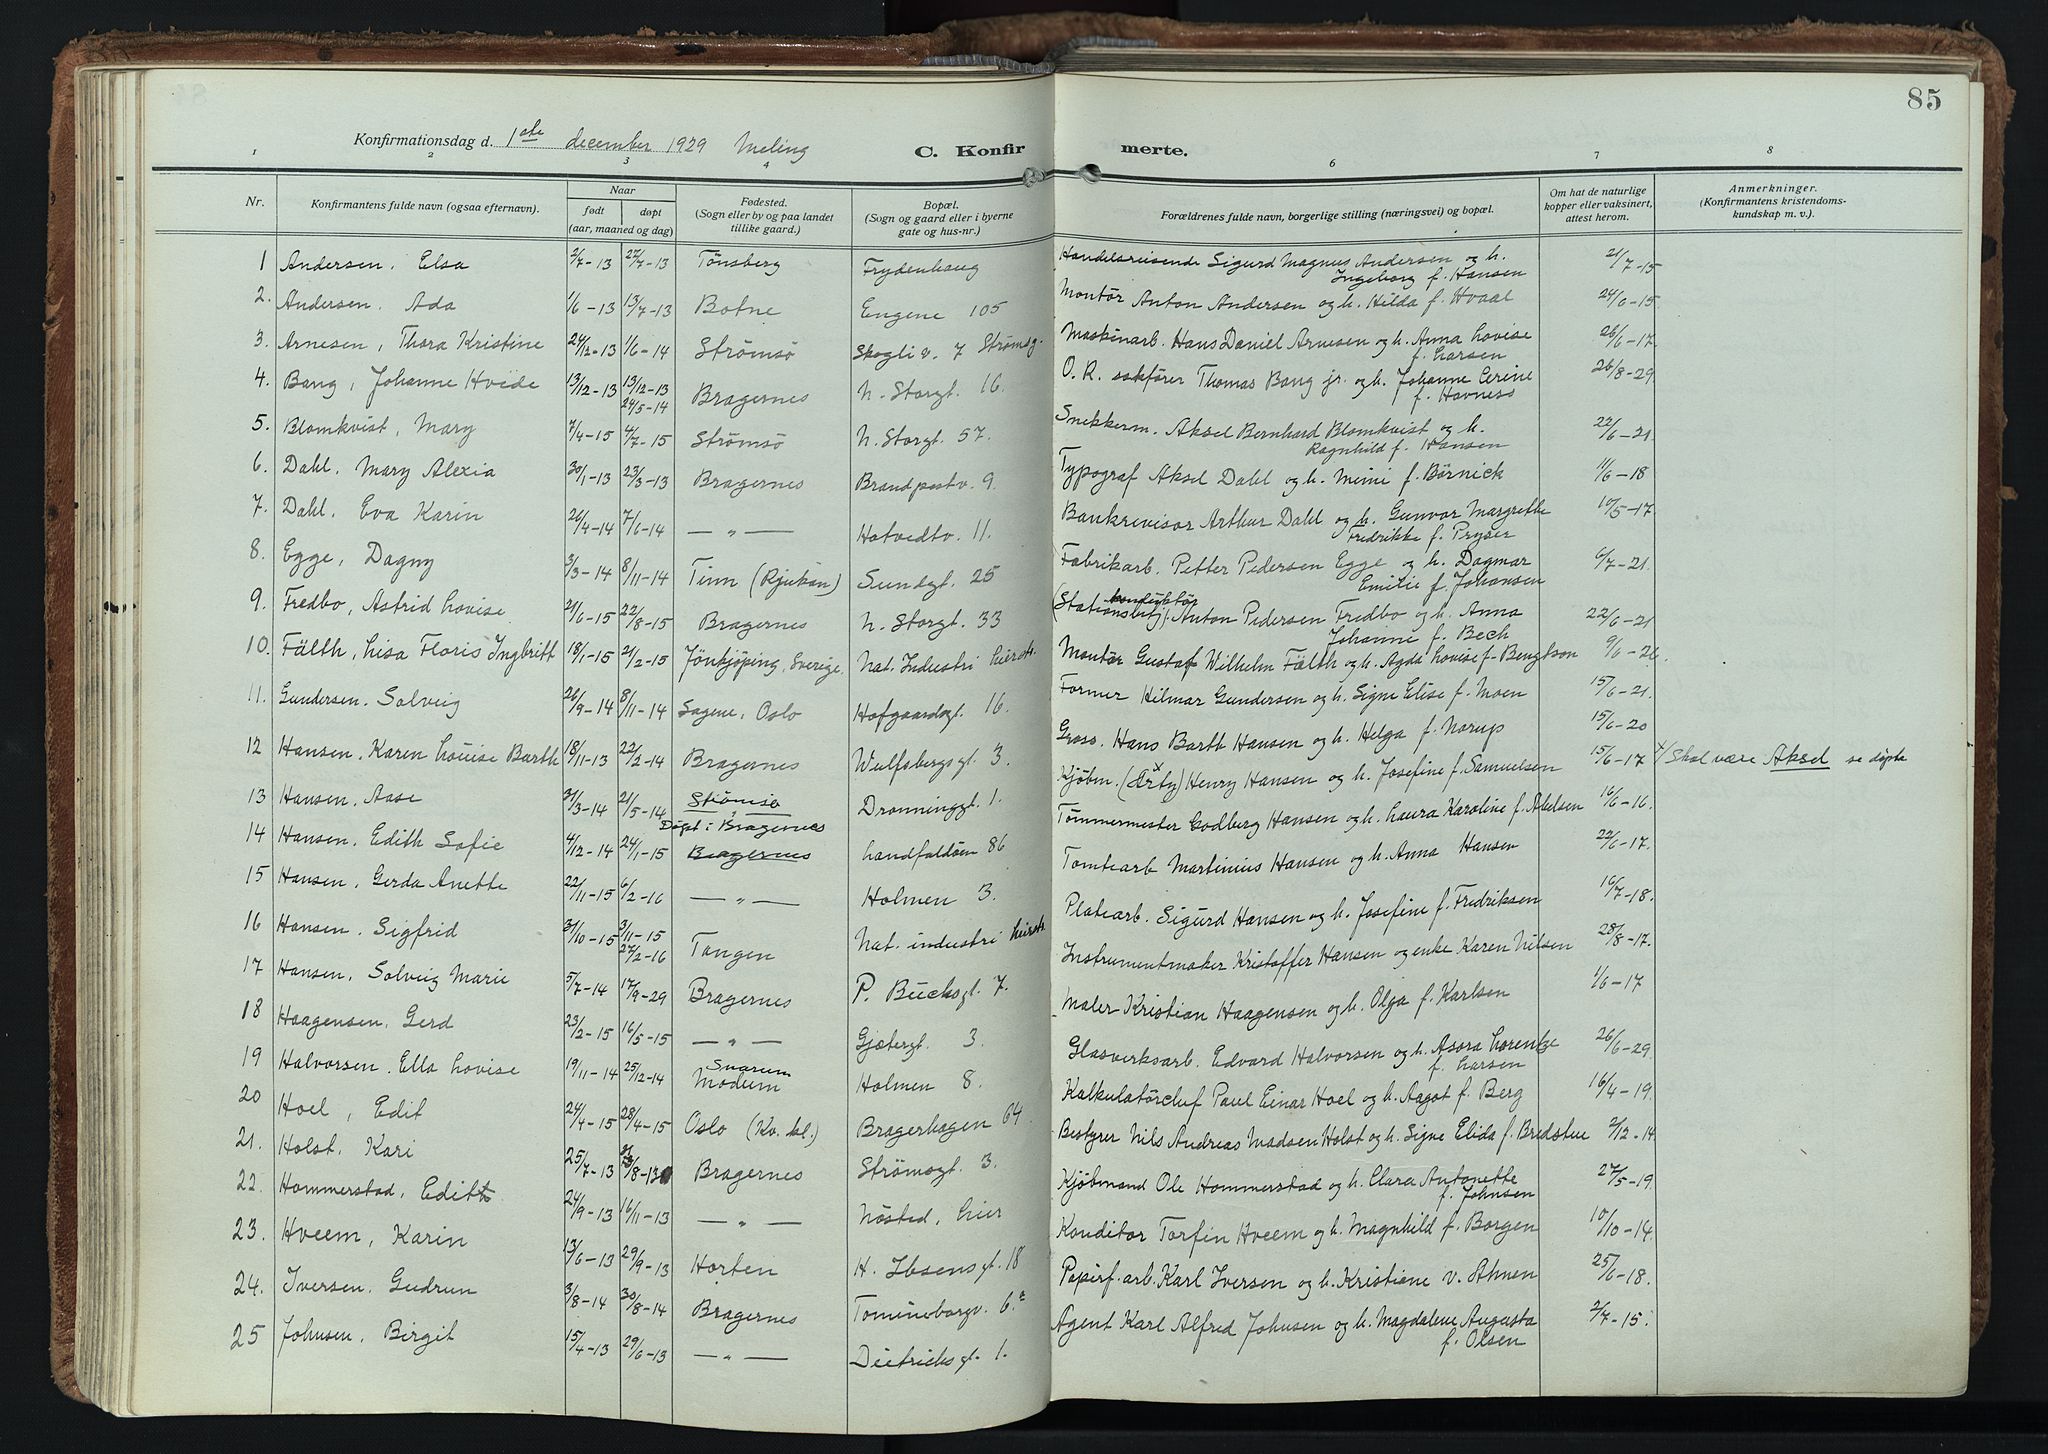 85
Konfirmationsdag d. 1ste december 1929 Meling
C. Konfirmerte.
1 2 3 4 6 7 8
Nr.
Konfirmantens fulde navn (ogsaa efternavn).
Naar
født døpt
(aar, maaned og dag)
Fødested.
(Sogn eller by og paa landet
tillike gaard.)
Bopæl.
(Sogn og gaard eller i byerne
gate og hus-nr.)
Forældrenes fulde navn, borgerlige stilling (næringsvei) og bopæl.
Om hat de naturlige
kopper eller vaksinert,
attest herom.
Anmerkninger.
(Konfirmantens kristendoms-
kundskap m. v.)
1 Andersen, Elsa 2/7-13 27/7-13 Tönsberg Frydenhaug Handelsreisende Sigurd Magnus Andersen og h. 21/7-15
Ingeborg f. Hansen
2. Andersen, Ada 1/6-13 13/7-13 Botne Engene 105 Montör Anton Andersen og h. Hilda f. Hvaal 24/6-15.
3. Arnesen, Thora Kristine 24/12-13 1/6-14 Strömsö Skogli v. 7 Strömsg. Maskinarb. Hans Daniel Arnesen og h. Anna Lovise 26/6-17.
f. Larsen
4. Bang, Johanne Hvide 13/12-13 13/12-13 Bragernes N. Storgt. 16. O. R. sakfører Thomas Bang jr. og h. Johanne Cerine 26/8-29.
24/5-14 f. Havness
5. Blomkvist, Mary 7/4-15 4/7-15 Strömsö N. Storgt. 57. Snekkerm. Aksel Bernhard Blomkvist og h. 22/6-21.
Ragnhild f. Hansen
6. Dahl, Mary Alexia 30/1-13 23/3-13 Bragernes Brandpostv. 9. Typograf Aksel Dahl og h. Mimi f. Börnick 11/6-18
7. Dahl, Eva Karin 26/4-14 7/6-14 — " — Hotvedtv. 11. Bankrevisor Arthur Dahl og h. Gunvor Margrethe 10/5-17.
Fredrikke f. Pryser
8. Egge, Dagny 3/3-14 8/11-14 Tinn (Rjukan) Sundgt. 25 Fabrikarb. Petter Pedersen Egge og h. Dagmar 6/7-21.
Emilie f. Johansen
konduktör
9. Fredbo, Astrid Lovise 21/6-15 22/8-15 Bragernes N. Storgt. 33 (Stationsbetj). Anton Pedersen Fredbo og h. Anna 22/6-21
Johanne f. Bech
10. Fälth, Lisa Floris Ingbritt 18/1-15 21/2-15 Jönkjöping, Sverige. Nat. Industri hierst. Montör Gustaf Wilhelm Fälth og h. Agda Lovise f. Bengtson 9/6-26.
11. Gundersen, Solveig 26/9-14 8/11-14 Sagene, Oslo Hofgaardsgt. 16. Former Hilmar Gundersen og h. Signe Elise f. Moen 15/6-21.
12 Hansen, Karen Louise Barth 18/11-13 22/2-14 Bragernes Wulfsbergsgt. 3. Gross. Hans Barth Hansen og h. Helga f. Norup 15/6-20
13 Hansen, Aase 31/3-14 21/5-14 Strömsö Dronninggt. 1. Kjøbm. (Arty)x Henry Hansen og h. Josefine f. Samuelsen 15/6-17 x/ Skal være Aksel se døpte
Døpt i Bragernes
14 Hansen, Edith Sofie 4/12-14 24/1-15 Bragernes Landfaldöen 86 Tömmermester Godberg Hansen og h. Laura Karoline f. Abelsen 16/6-16.
15 Hansen, Gerda Anette 22/11-15 6/2-16 — " — Holmen 3. Tomtearb. Martinius Hansen og h. Anna Hansen 22/6-17.
16 Hansen, Sigfrid 31/10-15 3/11-15 Tangen Nat. industri hierst. Platearb. Sigurd Hansen og h. Josefine f. Fredriksen 16/7-18.
27/2-16
17 Hansen, Solveig Marie 5/7-14 17/9-29 Bragernes P. Buchsgt. 7. Instrumentmaker Kristoffer Hansen og enke Karen Nilsen 28/8-17.
18 Haagensen, Gerd 23/2-15 16/5-15 — " — Gjætergt. 3. Maler Kristian Haagensen og h. Olga f. Karlsen 1/6-17
19 Halvorsen, Ella Lovise 19/11-14 25/12-14 Snarum Modum Holmen 8. Glasverksarb. Edvard Halvorsen og h. Asora Lorentze 26/6-29.
f. Larsen
20 Hoel, Edit 24/4-15 28/4-15 Oslo (Kv. kl.) Bragerhagen 64. Kalkulatörchef Paul Einar Hoel og h. Aagot f. Berg 16/4-19.
21. Holst, Kari 25/7-13 31/8-13 Bragernes Strömsgt. 3. Bestyrer Nils Andreas Madsen Holst og h. Signe Elida f. Bredsten 2/12-14.
22. Hommerstad, Edith 24/9-13 16/11-13 — " — Nösted, hier Kjøbmand Ole Hommerstad og h. Clara Antonette 27/5-19.
f. Johnsen
23. Hveem, Karin 13/6-13 29/9-13 Horten H. Ibsensgt. 18 Konditor Torfin Hveem og h. Magnhild f. Borgen 10/10-14.
24. Iversen, Gudrun 3/8-14 30/8-14 Bragernes Tomineborgv. 6.a Papirf. arb. Karl Iversen og h. Kristiane v. Ahnen 25/6-18.
25 Johnsen, Birgit 15/4-13 29/6-13 — " — Dietrichsgt. 1. Agent Karl Alfred Johnsen og h. Magdalene Augusta 2/7-15.
f. Olsen